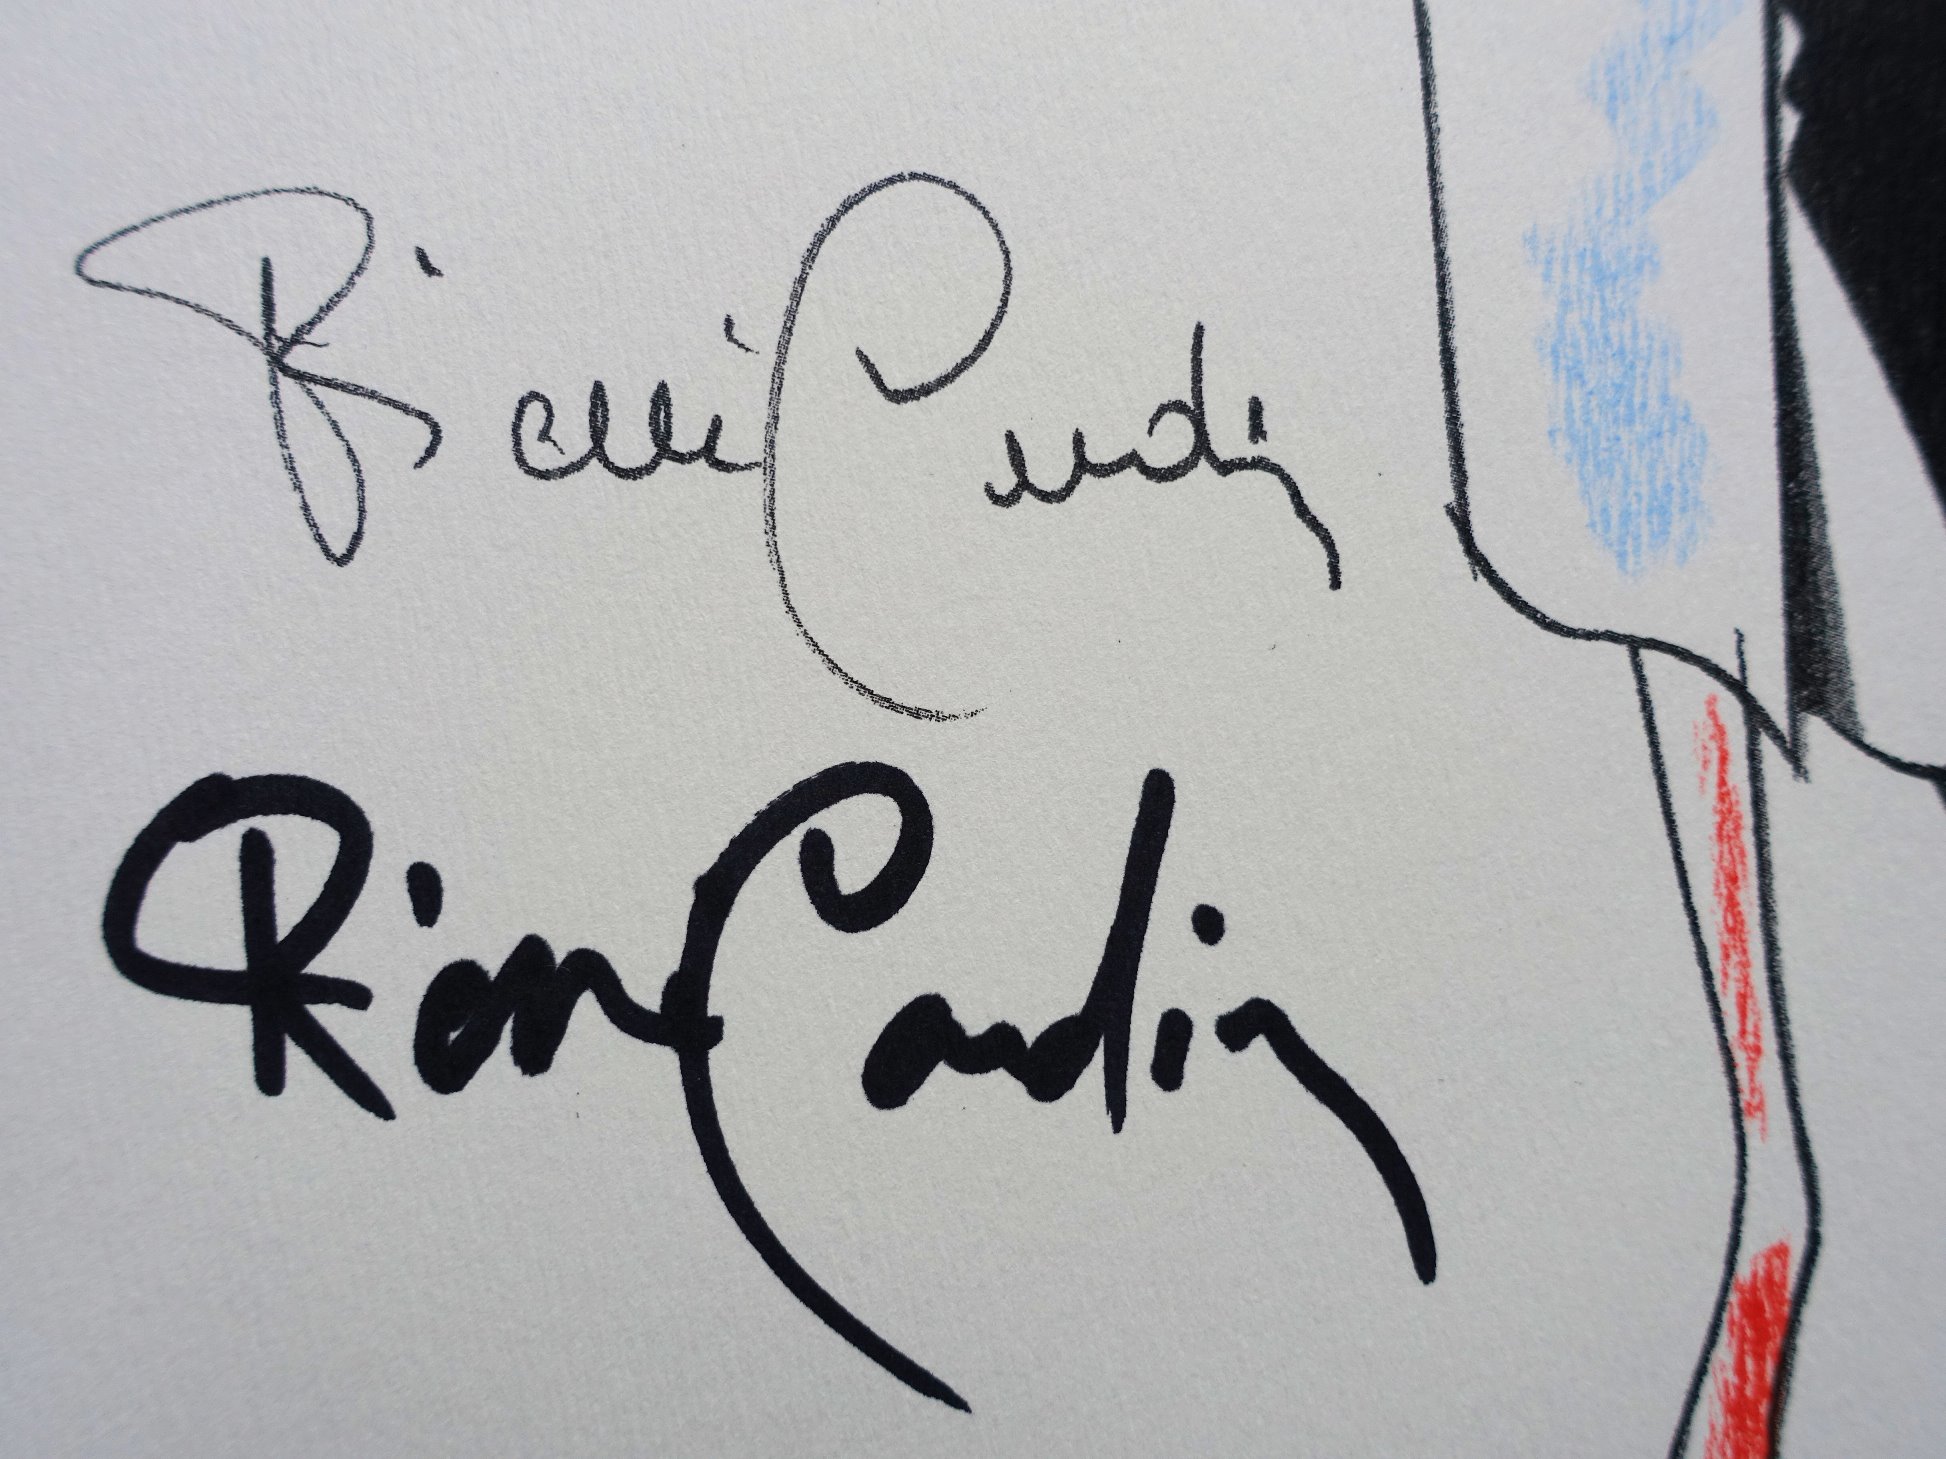 Pierre Cardin
Pierre Cardin